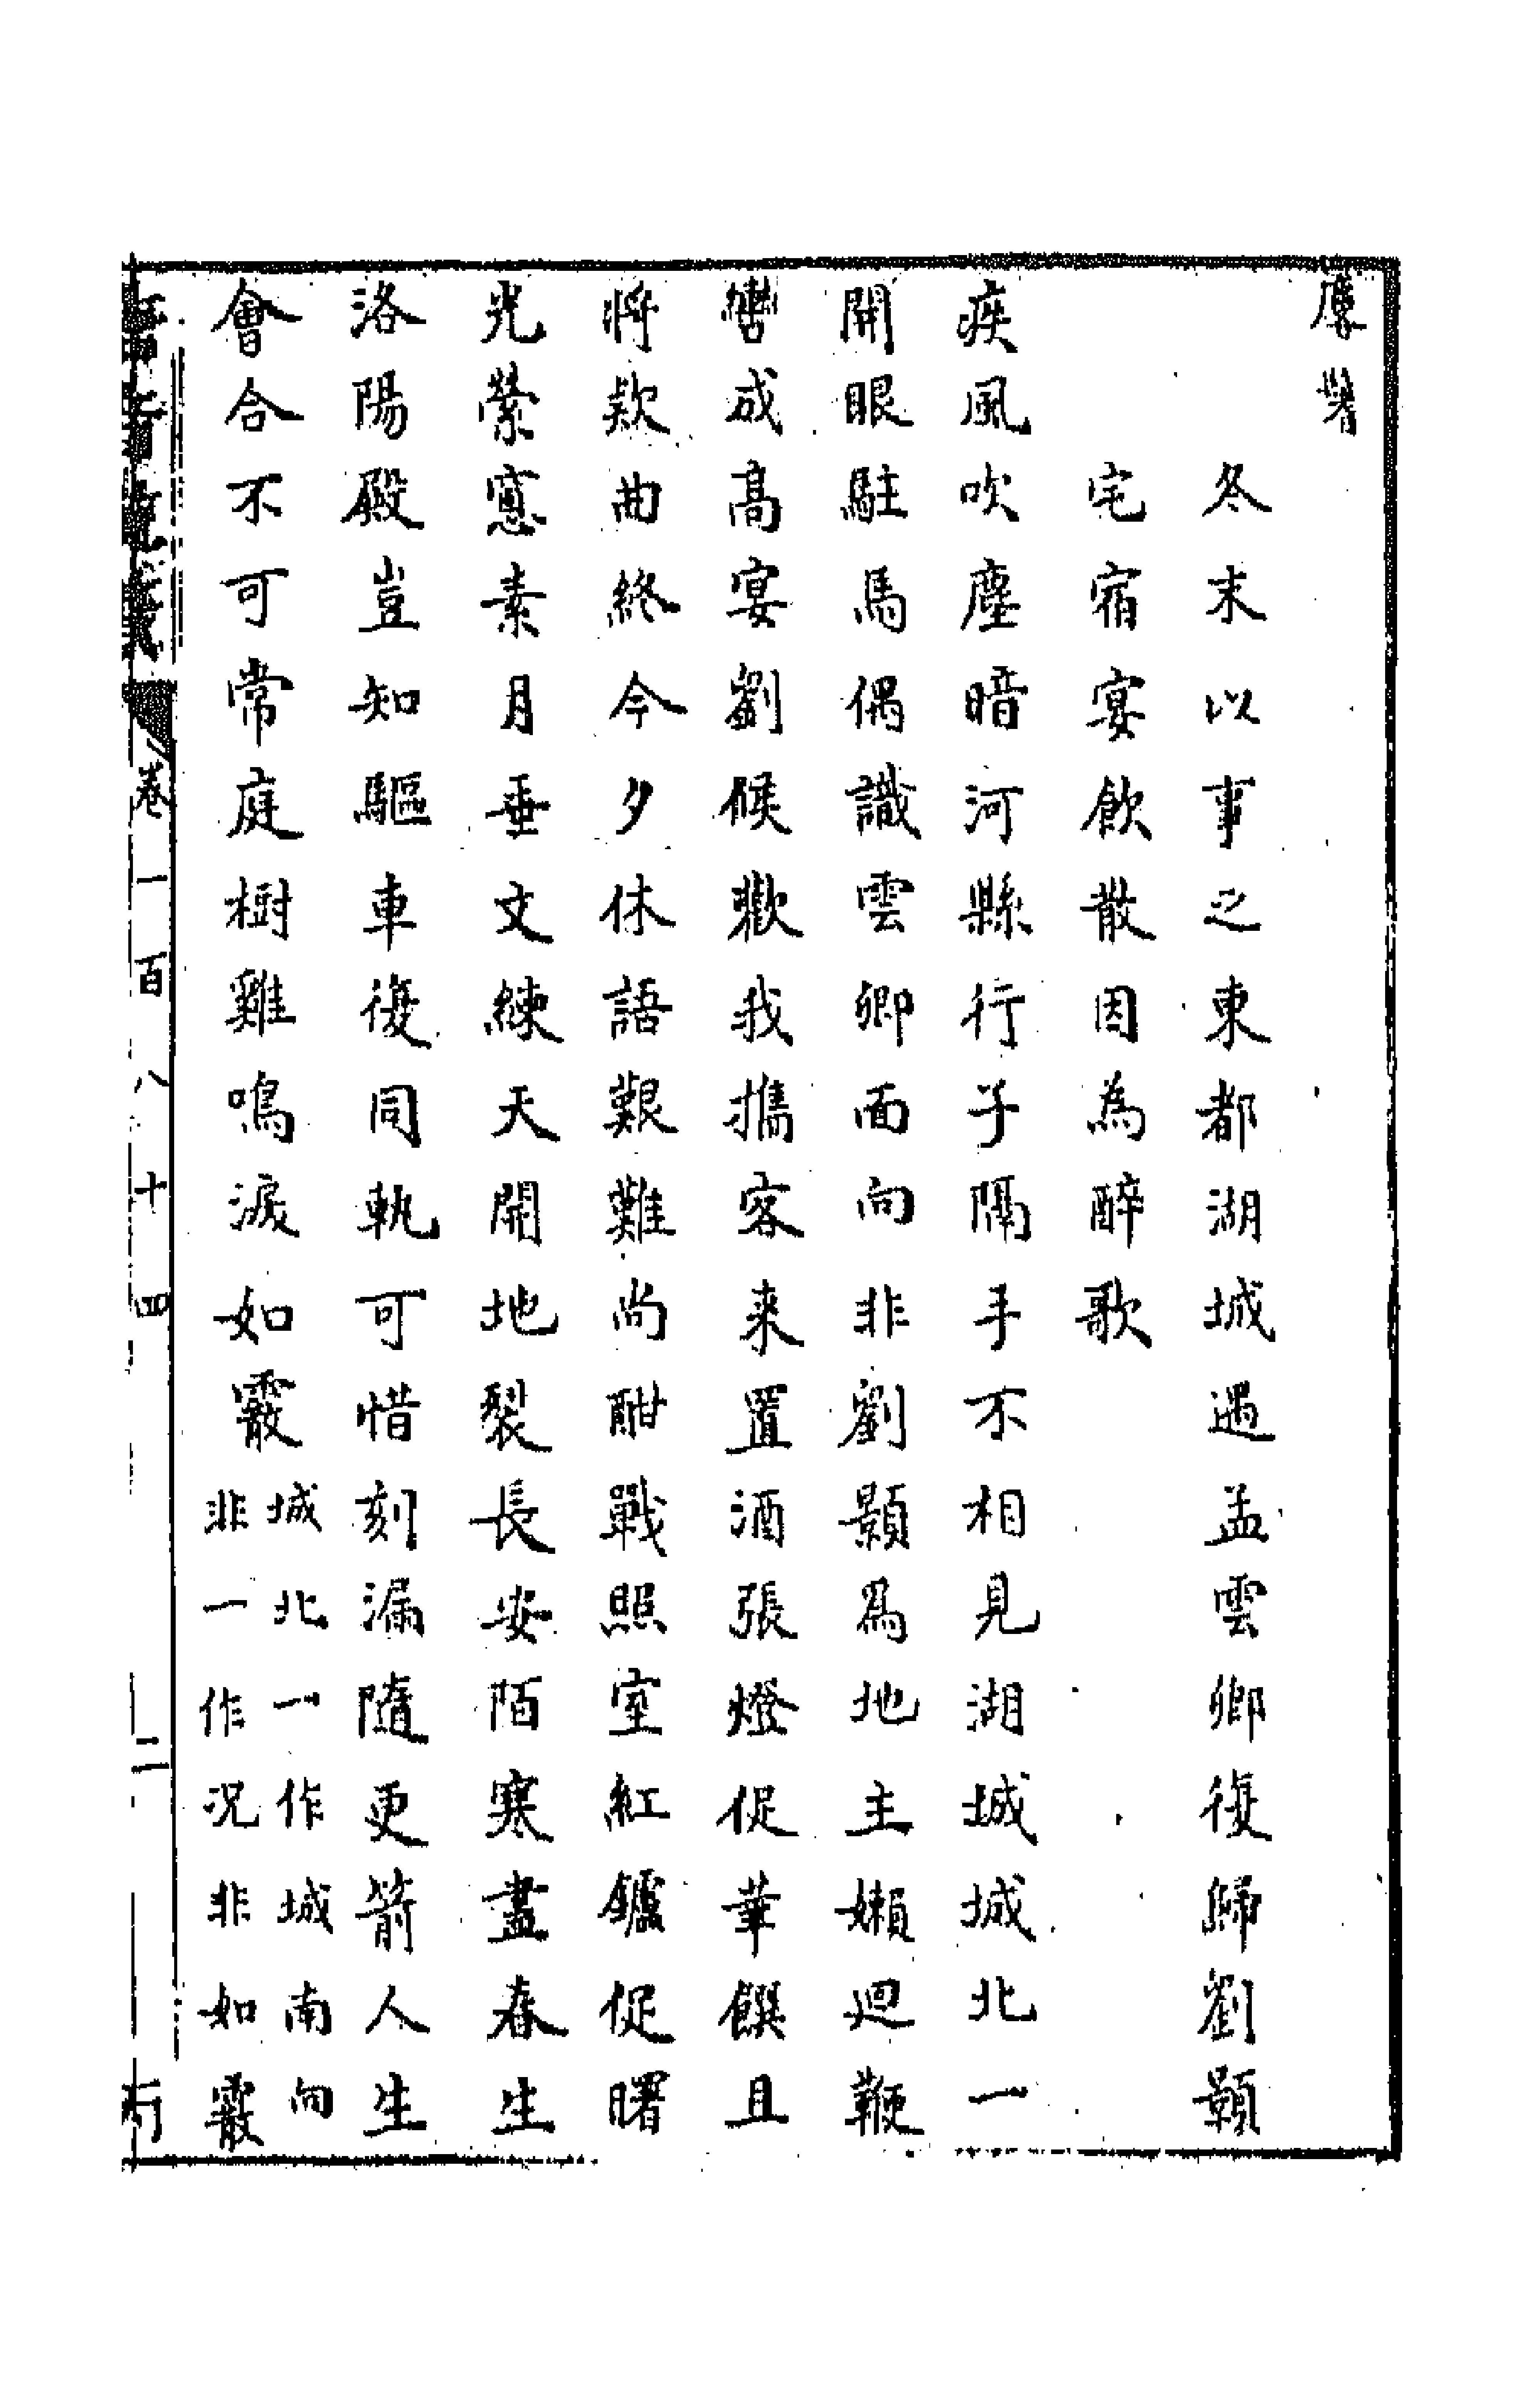 冬末以事之東都湖城遇孟雲卿復歸劉顥
宅宿宴飲散因為醉歌
疾風吹塵暗河縣行子隔手不相見湖城城北一
開眼駐馬偶識雲卿面向非劉顥爲地主嬾迴鞭
轡成高宴劉侯歡我攜客來置酒張燈促華饌且
將款曲終今夕休語艱難尚酣戰照室紅鑪促曙
光縈窻素月垂文練天開地裂長安陌寒盡春生
洛陽殿豈知驅車復同軌可惜刻漏隨更箭人生
會合不可常庭樹雞鳴淚如霰
城北一作城南向
非一作况非如霰
卷一百八十四
二